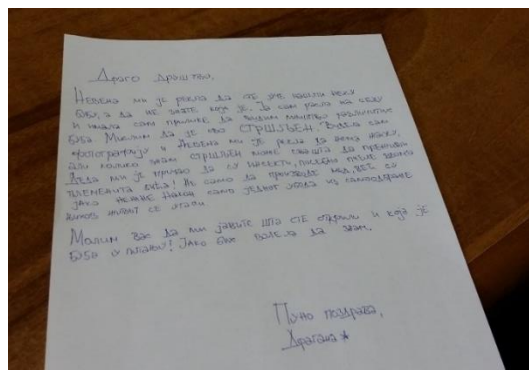 Драго друштво,
Невена ми је рекла да сте јуче нашли неку
бубу, а да не знате која је. Ја сам расла на селу
и имала сам прилике да видим мноштво различитих
буба. Мислим да је ово СТРШЉЕН. Видела сам
фотографију и Невена ми је рекла да има жаоку,
али колико знам стршљен може свашта да преживи
Деда ми је причао да су инсекти, пчеле
племенита бића! Не само да производе мед, већ су
јако нежне. Након само једног убода из самоодбране
њихов живот се угаси.
Молим вас да ми јавите шта сте открили и која је
буба у питању! Јако бих волела да знам.
Пуно поздрава,
Драгана*